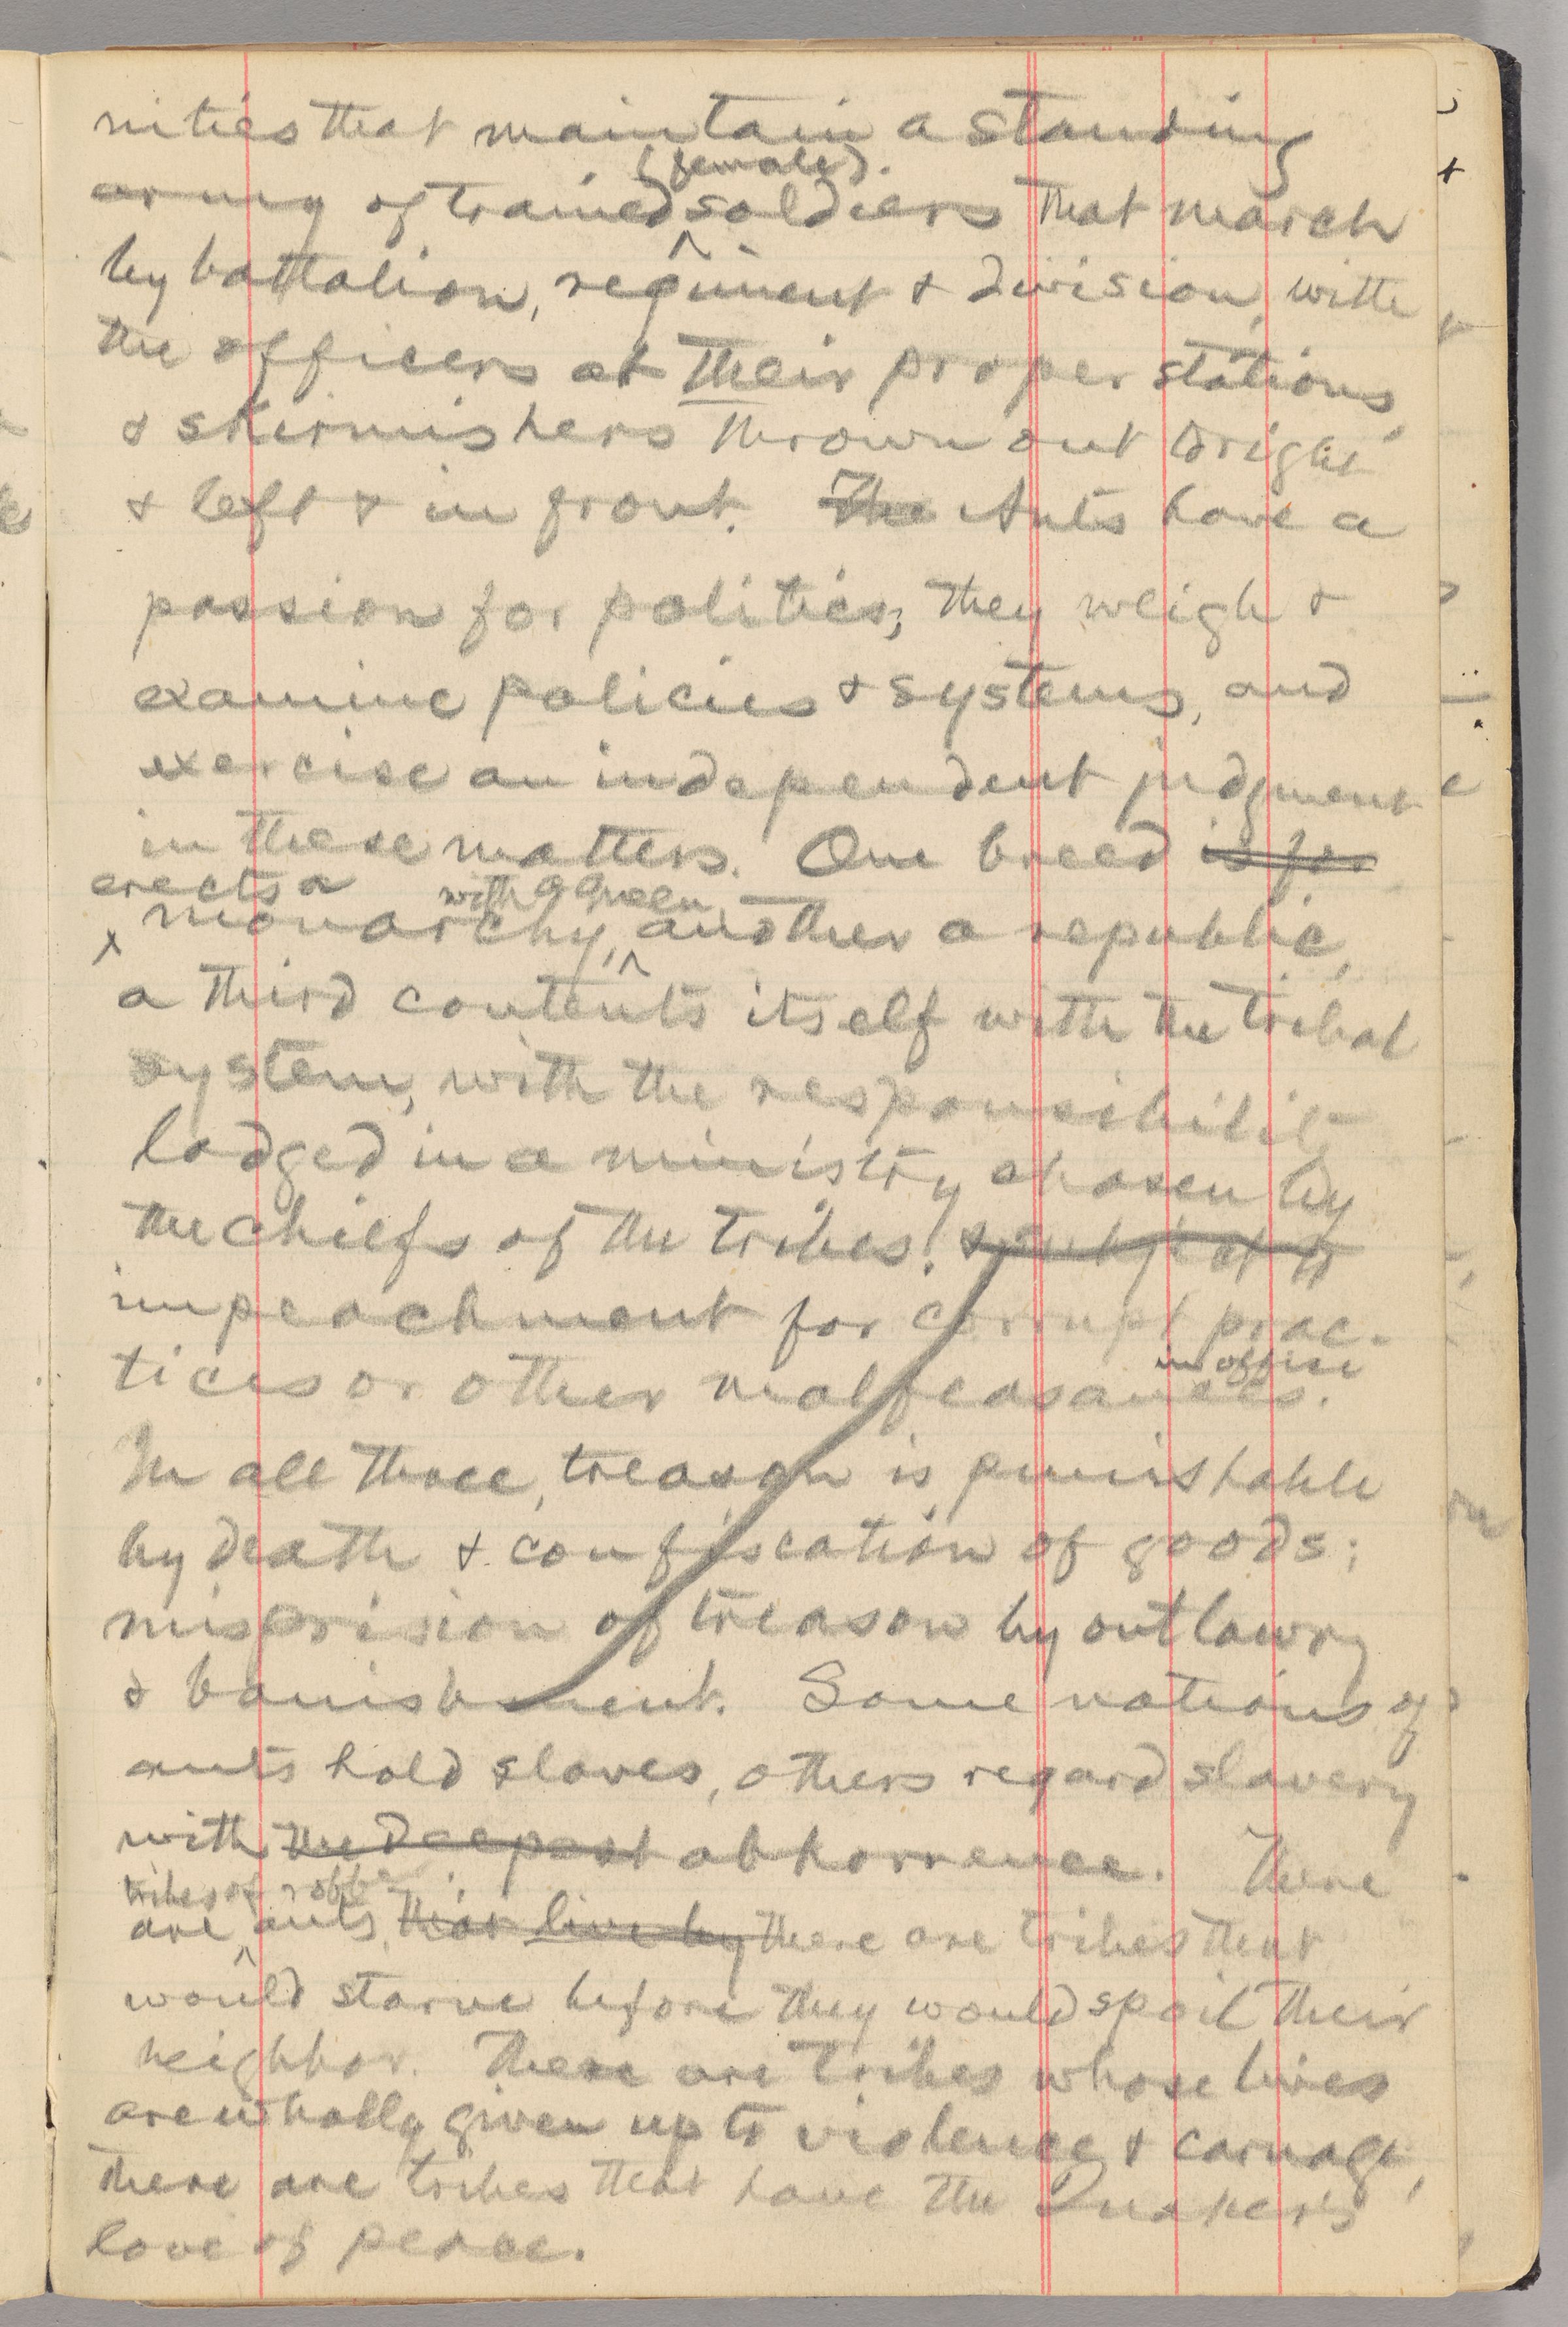 nities that maintain a standing
(female).
army of trained soldiers that march
by battalion, regiment & division, with
the officers at their proper stations,
& skirmishers thrown out to right
& left & in front. The Ants have a
passion for politics; they weigh &
examine policies & systems, and
exercise an independent judgment
in these matters. One breed is for
erects a with a Queen
monarchy, another a republic,
a third contents itself with the tribal
system, with the responsibility
lodged in a ministry chosen by
the chiefs of the tribes. & subject to
impeachment for corrupt prac-
tices or other malfeasances.
in office
In all three, treason is punishable
by death & confiscation of goods;
misprision of treason by outlawry
& banishment. Some nations of
ants hold slaves, others regard slavery
with the deepest abhorrence. There
tribes of robber
are ants, that live by there are tribes that
would starve before they would spoil their
neighbor. There are tribes whose lives
are wholly given up to violence & carnage,
there are tribes that have the Quaker's
love of peace.